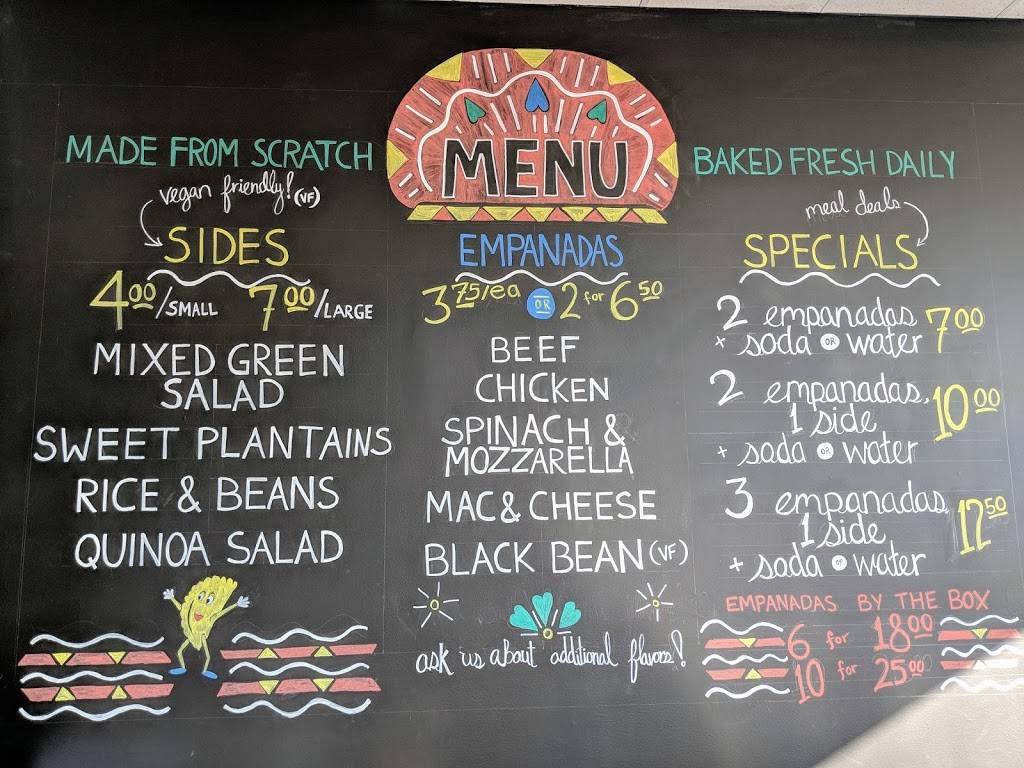 MENU
MADE FROM SCRATCH
vegan friendly! (VF)
SIDES
4.00/SMALL 7.00/LARGE
MIXED GREEN
SALAD
SWEET PLANTAINS
RICE & BEANS
QUINOA SALAD
EMPANADAS
3.75/ea OR 2 for 6.50
BEEF
CHICKEN
SPINACH &
MOZZARELLA
MAC & CHEESE
BLACK BEAN (VF)
ask us about additional flavors!
BAKED FRESH DAILY
meal deals
SPECIALS
2 empanadas
+ soda OR water 7.00
2 empanadas,
1 side 10.00
+ soda OR water
3 empanadas,
1 side 12.50
+ soda OR water
EMPANADAS BY THE BOX
6 for 18.00
10 for 25.00